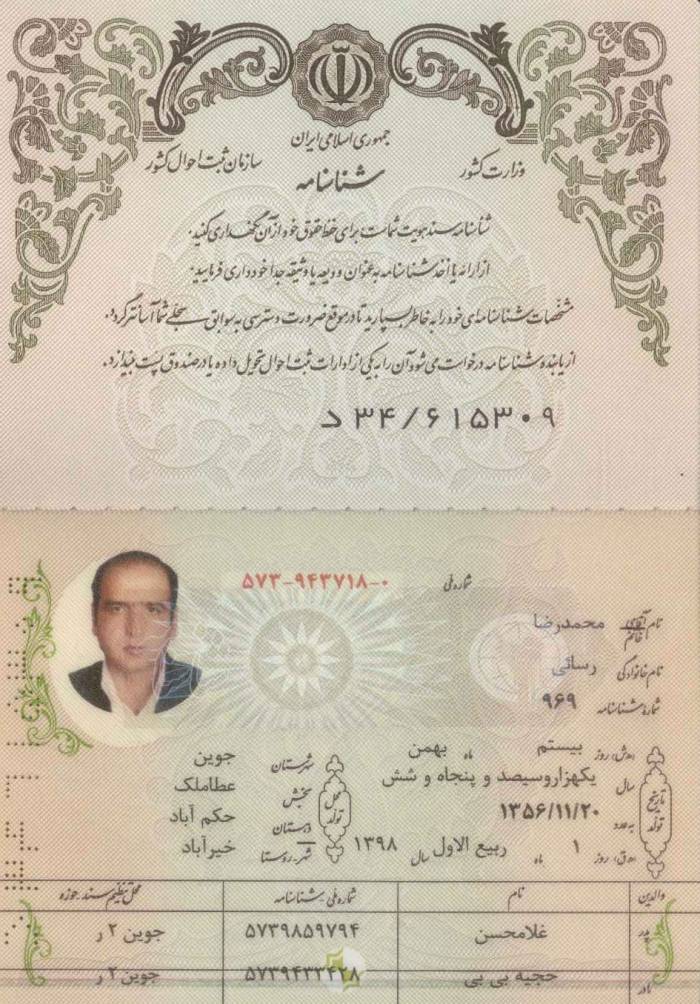 جمهوری اسلامی ایران
وزارت کشور
سازمان ثبت احوال کشور
شناسنامه
شناسنامه سند هویت شماست برای حفظ حقوق خود از آن نگهداری کنید.
از ارائه یا اخذ شناسنامه به عنوان ودیعه یا وثیقه جدا خودداری فرمایید.
مشخصات شناسنامه‌ای خود را به خاطر بسپارید تا در موقع ضرورت دسترسی به سوابق سجلی شما آسانتر گردد.
از یابنده شناسنامه درخواست می شود آن را به یکی از ادارات ثبت احوال تحویل داده یا در صندوق پست بیندازد.
د ۳۴/۶۱۵۳۰۹
شماره ملی ۵۷۳-۹۴۳۷۱۸-۰
نام آقای خانم محمدرضا
نام خانوادگی رسائی
شماره شناسنامه ۹۶۹
تاریخ تولد
ه‍.ش: روز بیستم ماه بهمن
سال یکهزار و سیصد و پنجاه و شش
به عدد ۱۳۵۶/۱۱/۲۰
ه‍.ق: روز ۱ ماه ربیع الاول سال ۱۳۹۸
محل تولد
شهرستان جوین
بخش عطاملک
دهستان حکم آباد
شهر-روستا خیرآباد
والدین نام شماره ملی-شناسنامه محل تنظیم سند حوزه
پدر غلامحسن ۵۷۳۹۸۵۹۷۹۴ جوین ۲ ر
مادر حجیه بی بی ۵۷۳۹۴۳۳۴۲۸ جوین ۲ ر